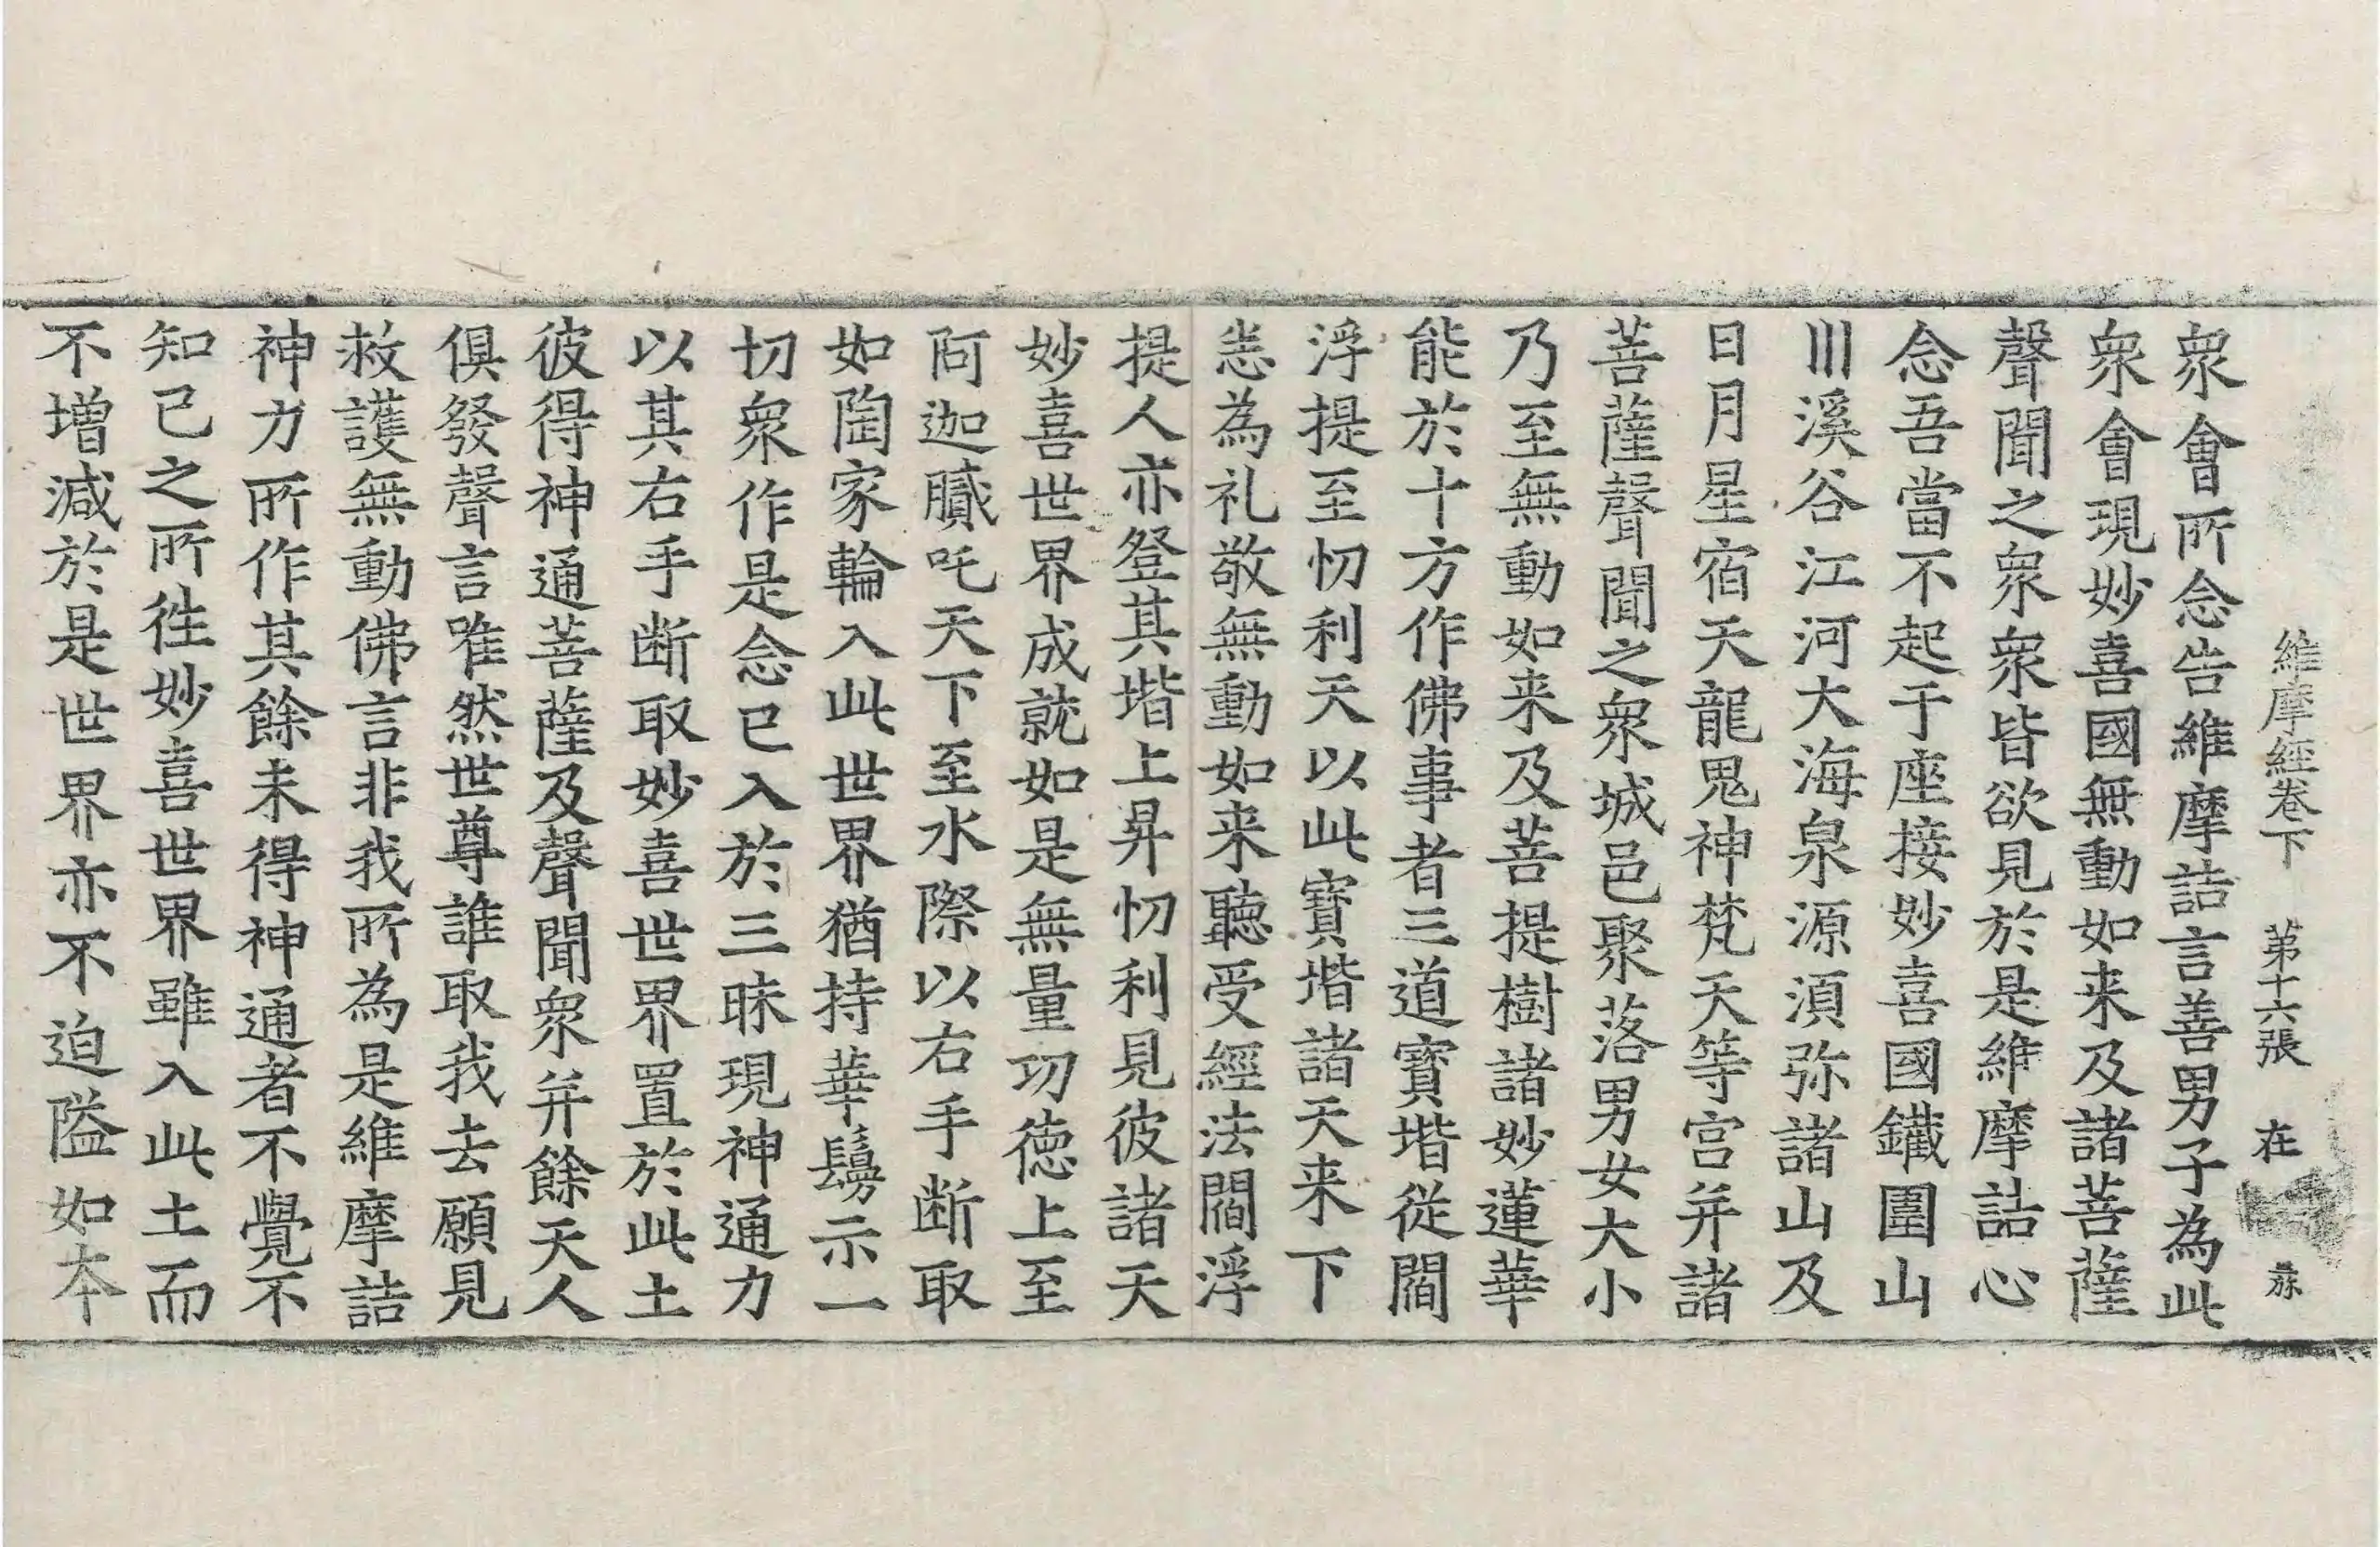 維摩經卷下 第十六張 在
衆會所念告維摩詰言善男子為此
衆會現妙喜國無動如来及諸菩薩
聲聞之衆衆皆欲見於是維摩詰心
念吾當不起于座接妙喜國鐵圍山
川溪谷江河大海泉源湏弥諸山及
日月星宿天龍鬼神梵天等宫并諸
菩薩聲聞之衆城邑聚落男女大小
乃至無動如来及菩提樹諸妙蓮華
能於十方作佛事者三道寳堦従閻
浮提至忉利天以此寳堦諸天来下
恚為礼敬無動如来聽受經法閻浮
提人亦登其堦上昇忉利見彼諸天
妙喜世界成就如是無量功徳上至
阿迦膩吒天下至水際以右手断取
如陶家輪入此世界猶持華鬘示一
切衆作是念已入於三昧現神通力
以其右手断取妙喜世界置於此土
彼得神通菩薩及聲聞衆并餘天人
俱發聲言唯然世尊誰取我去願見
救護無動佛言非我所為是維摩詰
神力所作其餘未得神通者不覺不
知已之所徃妙喜世界雖入此土而
不増减於是世界亦不迫隘如本